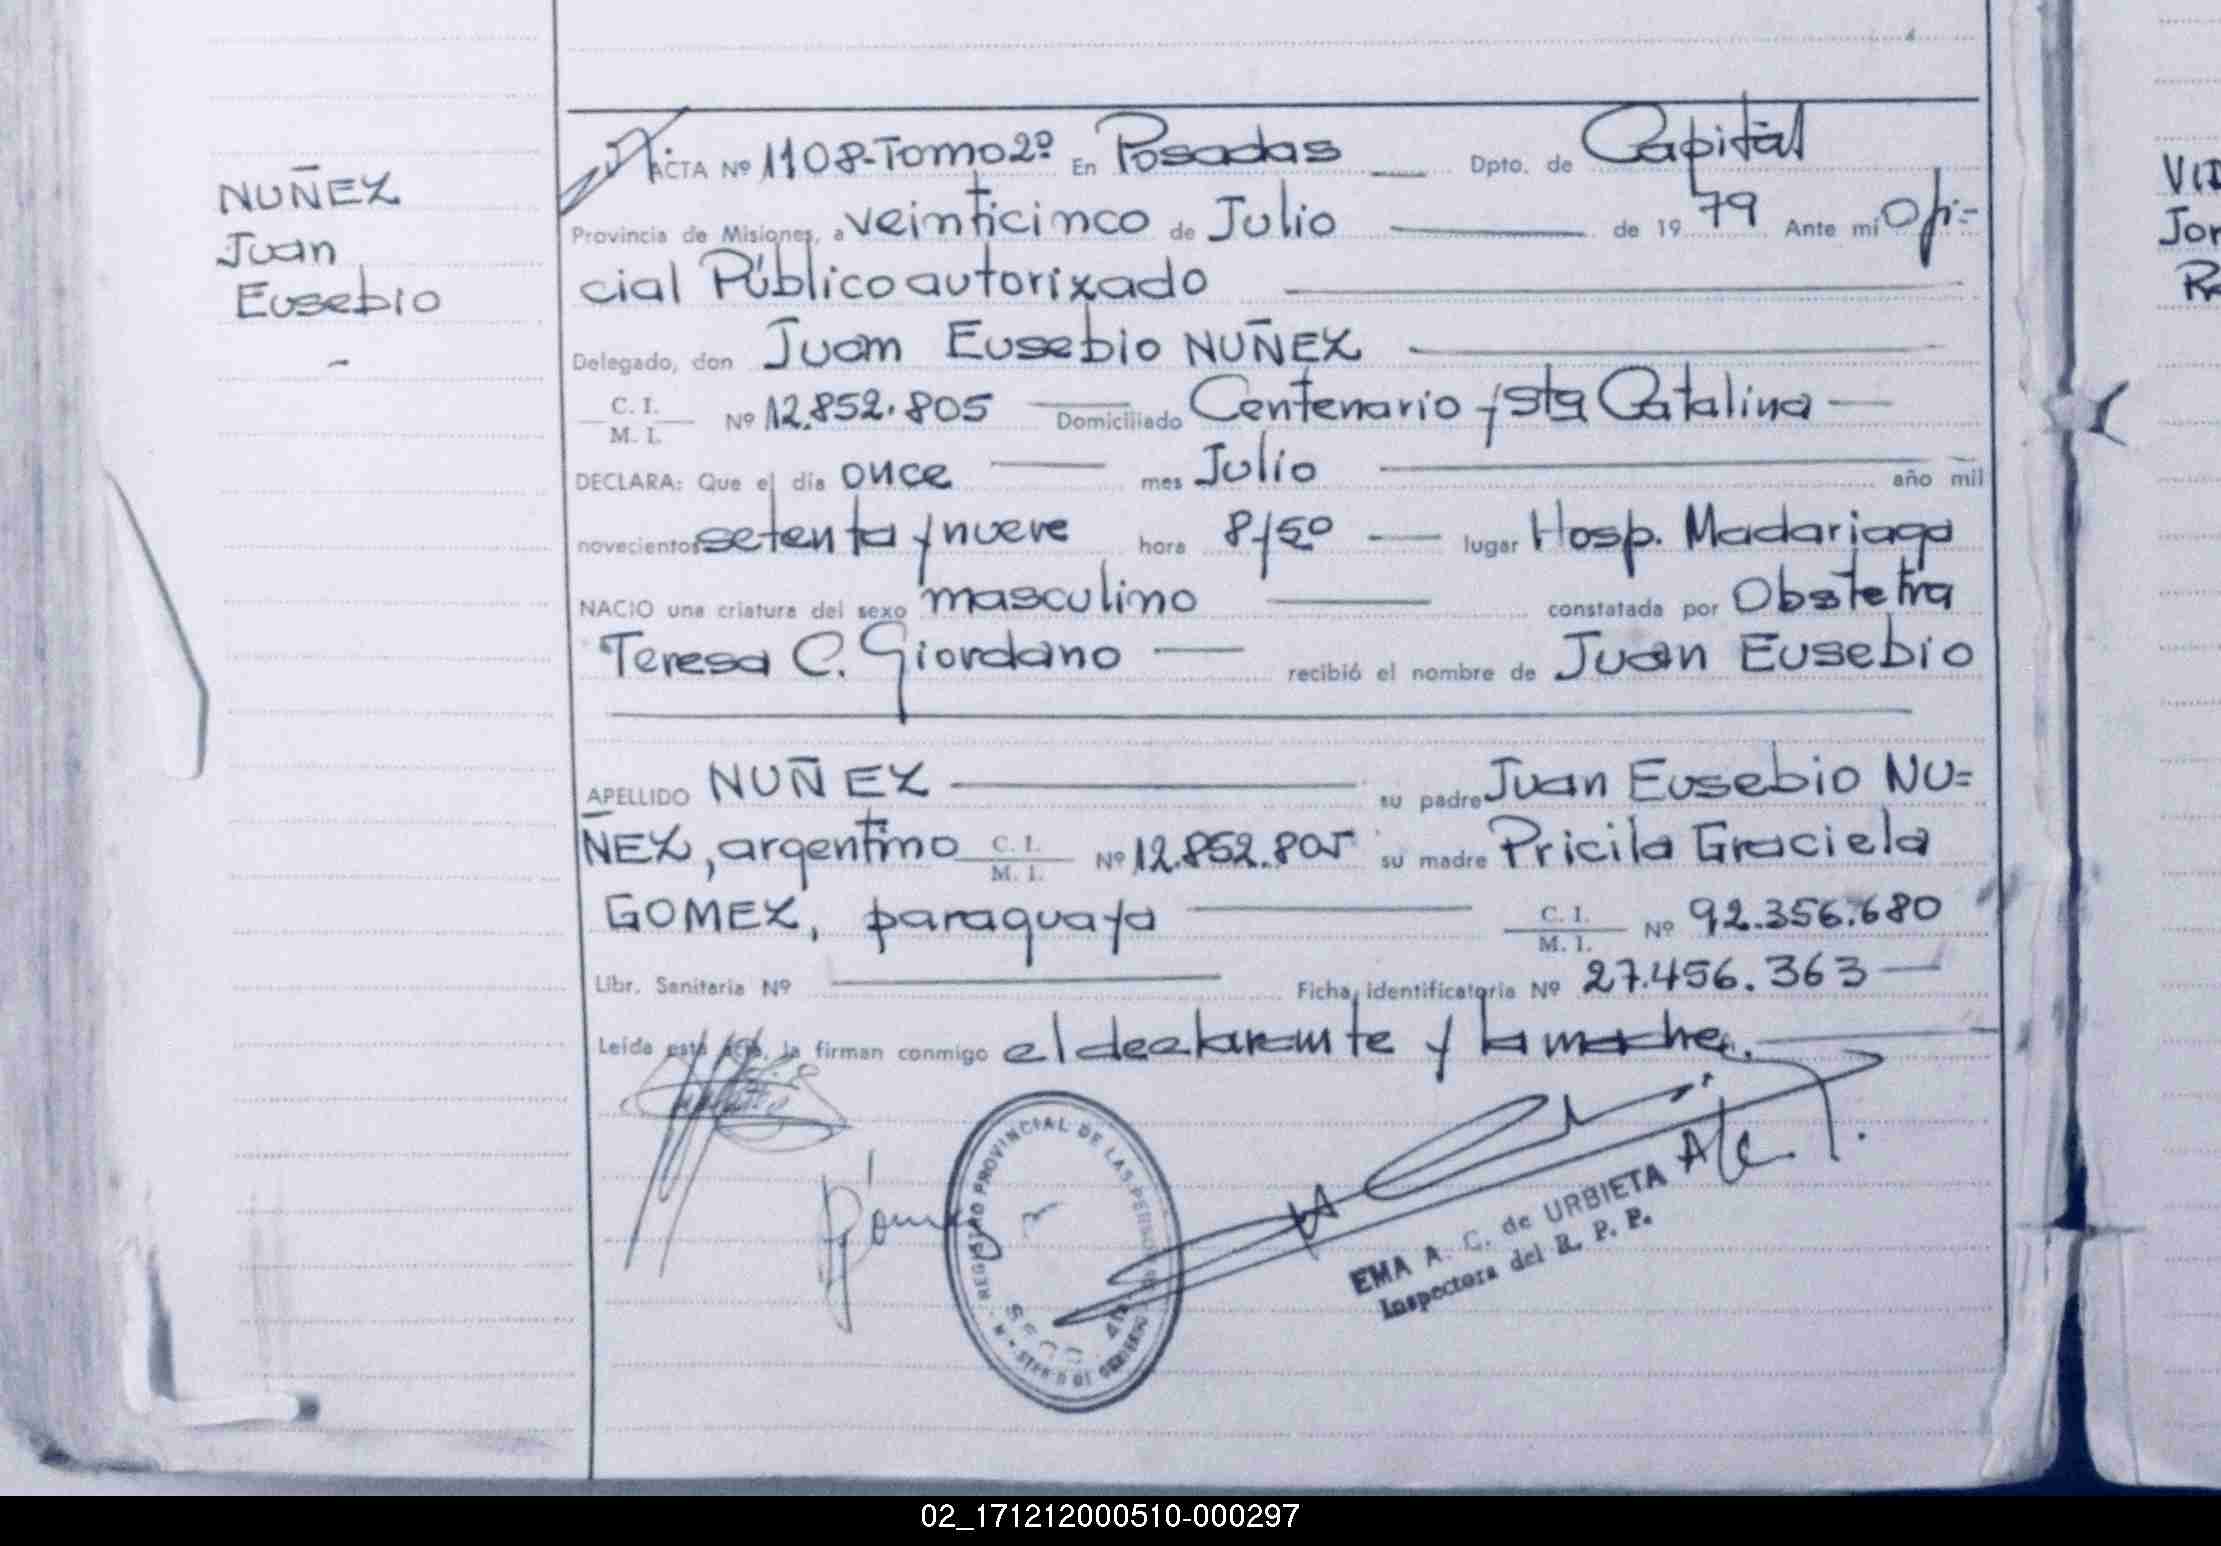 NUÑEZ
Juan
Eusebio
ACTA Nº 1108-Tomo 2º En Posadas Dpto. de Capital
Provincia de Misiones, a veinticinco de Julio de 19 79 Ante mi Ofi-
cial Público autorizado
Delegado, don Juan Eusebio NUÑEZ
C. I.
M. I. Nº 12.852.805 Domiciliado Centenario y Sta Catalina
DECLARA: Que el día once mes Julio año mil
novecientos setenta y nueve hora 8/50 lugar Hosp. Madariaga
NACIO una criatura del sexo masculino constatada por Obstetra
Teresa C. Giordano recibió el nombre de Juan Eusebio
APELLIDO NUÑEZ su padre Juan Eusebio NU=
ÑEZ, argentino C. I. M. I. Nº 12.852.805 su madre Pricila Graciela
GOMEZ, paraguaya C. I. M. I. Nº 92.356.680
Libr. Sanitaria Nº Ficha identificatoria Nº 27.456.363
Leída esta acta, la firman conmigo el declarante y la madre.
REGISTRO PROVINCIAL DE LAS PERSONAS
MINISTERIO DE GOBIERNO
EMA A. C. de URBIETA
Inspectora del R. P. P.
VID
Jor
02_171212000510-000297